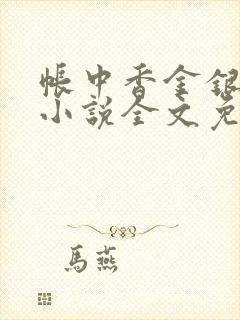 帳中香金銀
小說全文免
馬燕